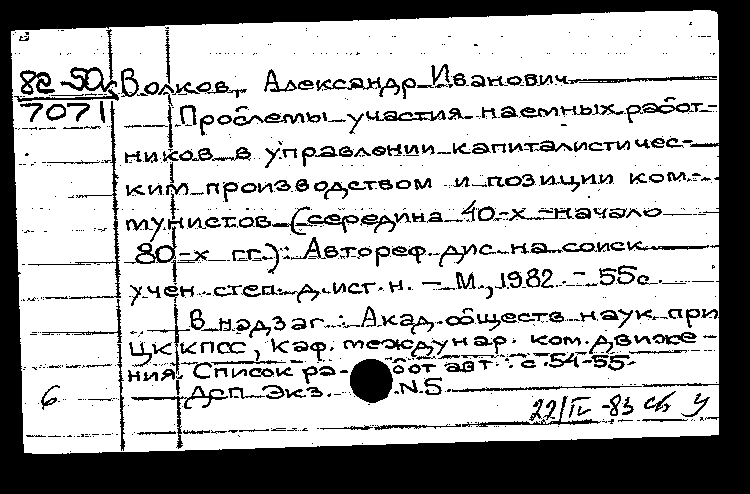 82-50к Волков, Александр Иванович
7071 Проблемы участия наемных работ-
ников в управлении капиталистичес-
ким производством и позиции ком-
мунистов (середина 40-х - начало
80-х гг.): Автореф. дис. на соиск.
учен. степ. д.ист.н. - М., 1982. - 55с.
В надзаг.: Акад. обществ. наук при
ЦК КПСС, Каф. междунар. ком. движе-
ния. Список работ авт.: с.54-55.
6 Дсп. Экз. N5
22/IV-83